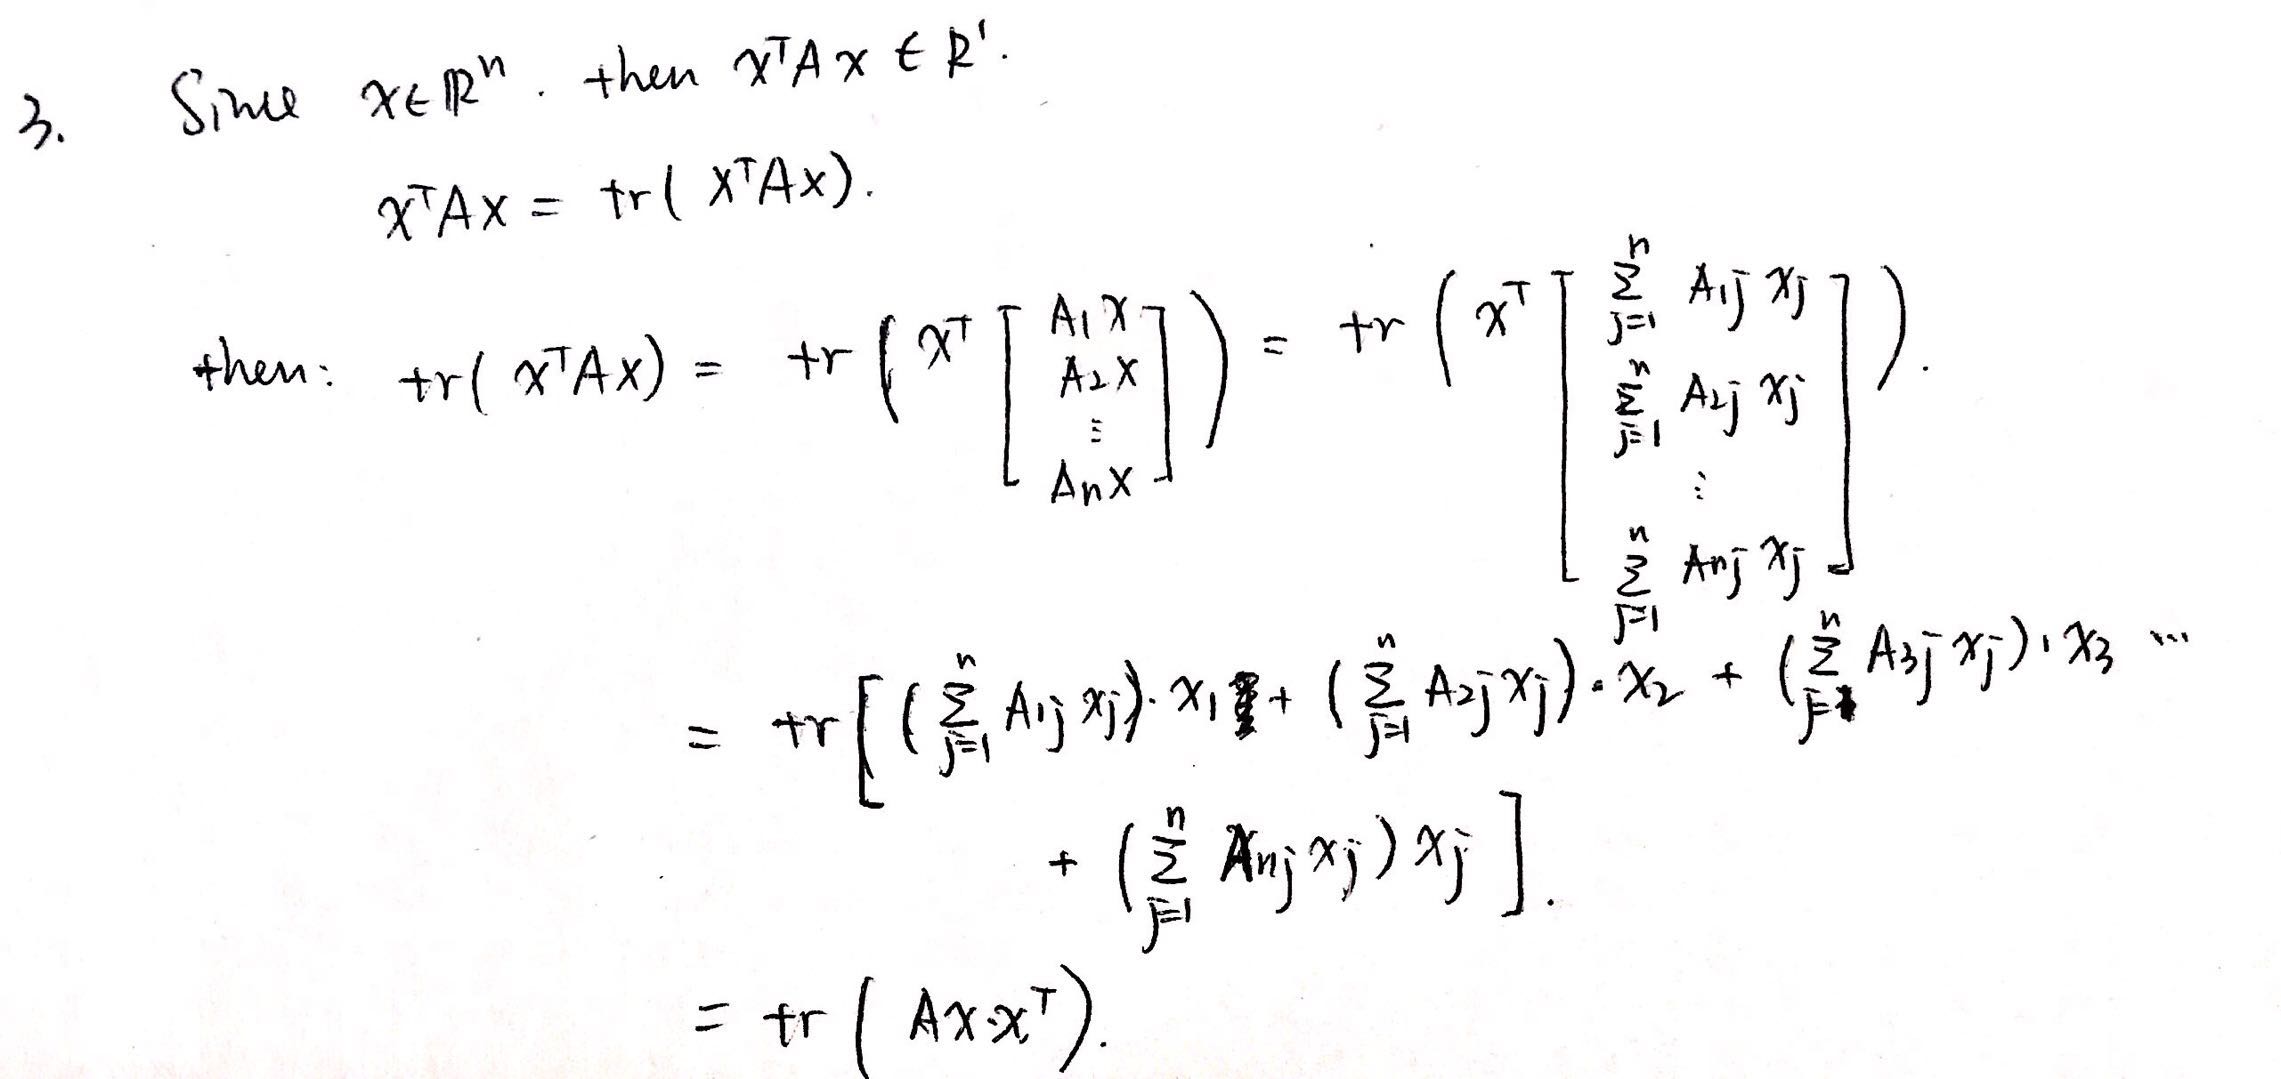 3. Since x∈ℝⁿ. then xᵀAx ∈ R¹.
xᵀAx = tr( xᵀAx).
then: tr( xᵀAx) = tr ( xᵀ [ A₁x A₂x ⋮ Aₙx ] ) = tr ( xᵀ [ ∑_{j=1}^{n} A₁ⱼ xⱼ ∑_{j=1}^{n} A₂ⱼ xⱼ ⋮ ∑_{j=1}^{n} Aₙⱼ xⱼ ] ).
= tr [ ( ∑_{j=1}^{n} A₁ⱼ xⱼ)· x₁ + ( ∑_{j=1}^{n} A₂ⱼ xⱼ)· x₂ + ( ∑_{j=1}^{n} A₃ⱼ xⱼ)· x₃ ...
+ ( ∑_{j=1}^{n} Aₙⱼ xⱼ ) xⱼ ].
= tr ( Ax·xᵀ).